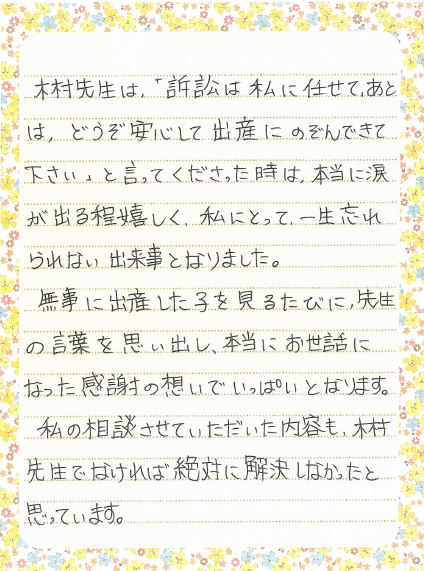 木村先生は、「訴訟は私に任せて、あと
は、どうぞ安心して出産にのぞんできて
下さい」と言ってくださった時は、本当に涙
が出る程嬉しく、私にとって、一生忘れ
られない出来事となりました。
無事に出産した子を見るたびに、先生
の言葉を思い出し、本当にお世話に
なった感謝の想いでいっぱいとなります。
私の相談させていただいた内容も、木村
先生でなければ絶対に解決しなかったと
思っています。